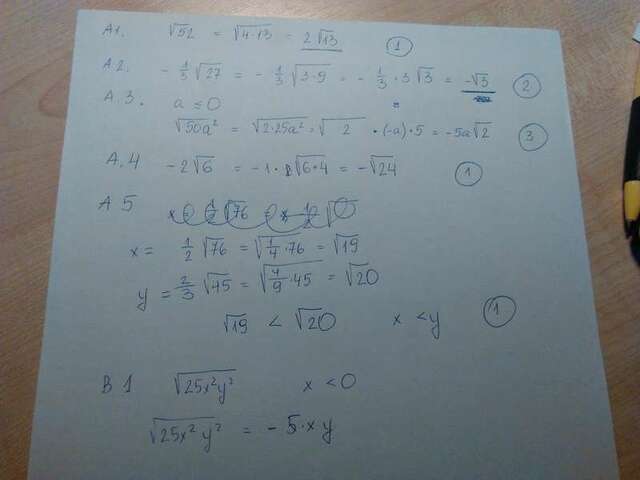 A1. √52 = √4·13 = 2√13 1
A.2. -1/3 √27 = -1/3 √3·9 = -1/3 · 3√3 = -√3 2
A.3. a ≤ 0
√50a² = √2·25a² = √2 · (-a) · 5 = -5a√2 3
A.4 -2√6 = -1 · √6·4 = -√24 1
A 5
x = 1/2 √76 = √1/4·76 = √19
y = 2/3 √45 = √4/9·45 = √20
√19 < √20 x < y 1
B 1 √25x²y² x < 0
√25x²y² = -5·xy